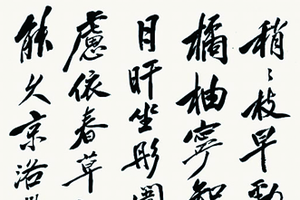 稍〻枝早勁
橘柚寧知
日旰坐彤闈
慮依春草
能久京洛